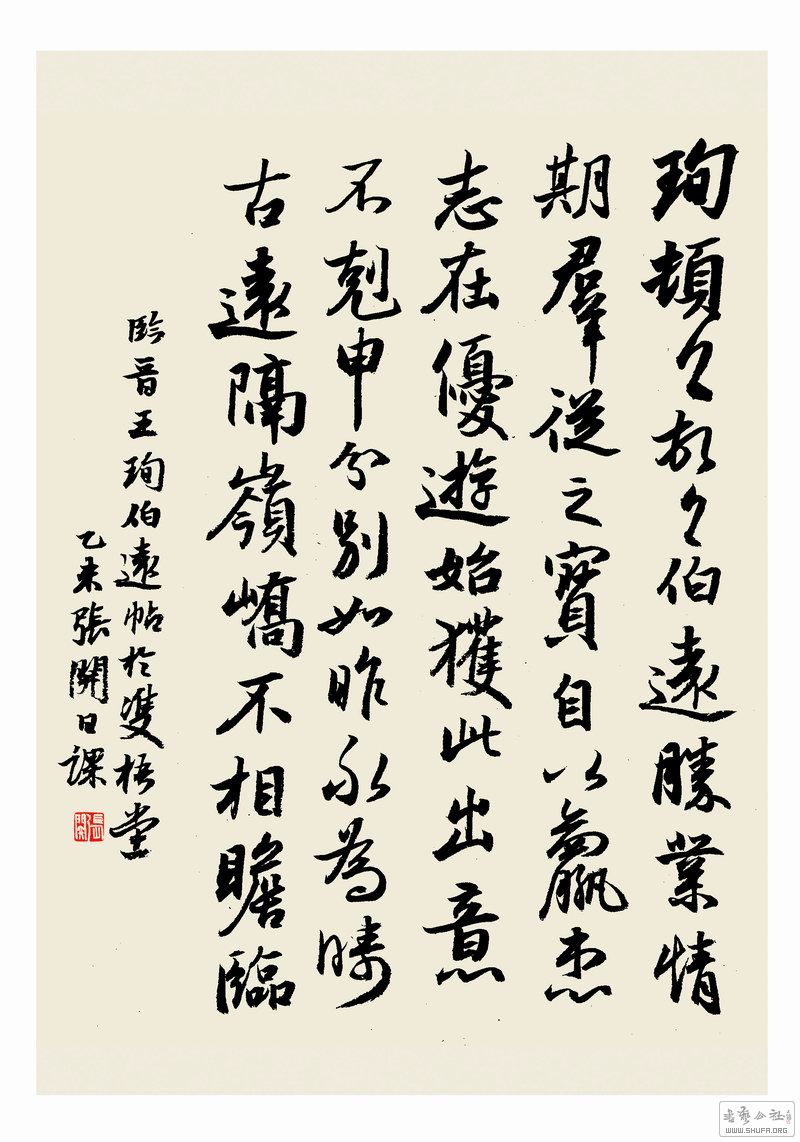 珣頓々首々伯遠勝業情
期羣從之寶自以羸患
志在優遊始獲此出意
不剋申分別如昨永為疇
古遠隔嶺嶠不相瞻臨
臨晉王珣伯遠帖於雙梧堂
乙未張開日課
張開
書藝公社
WWW.SHUFA.ORG